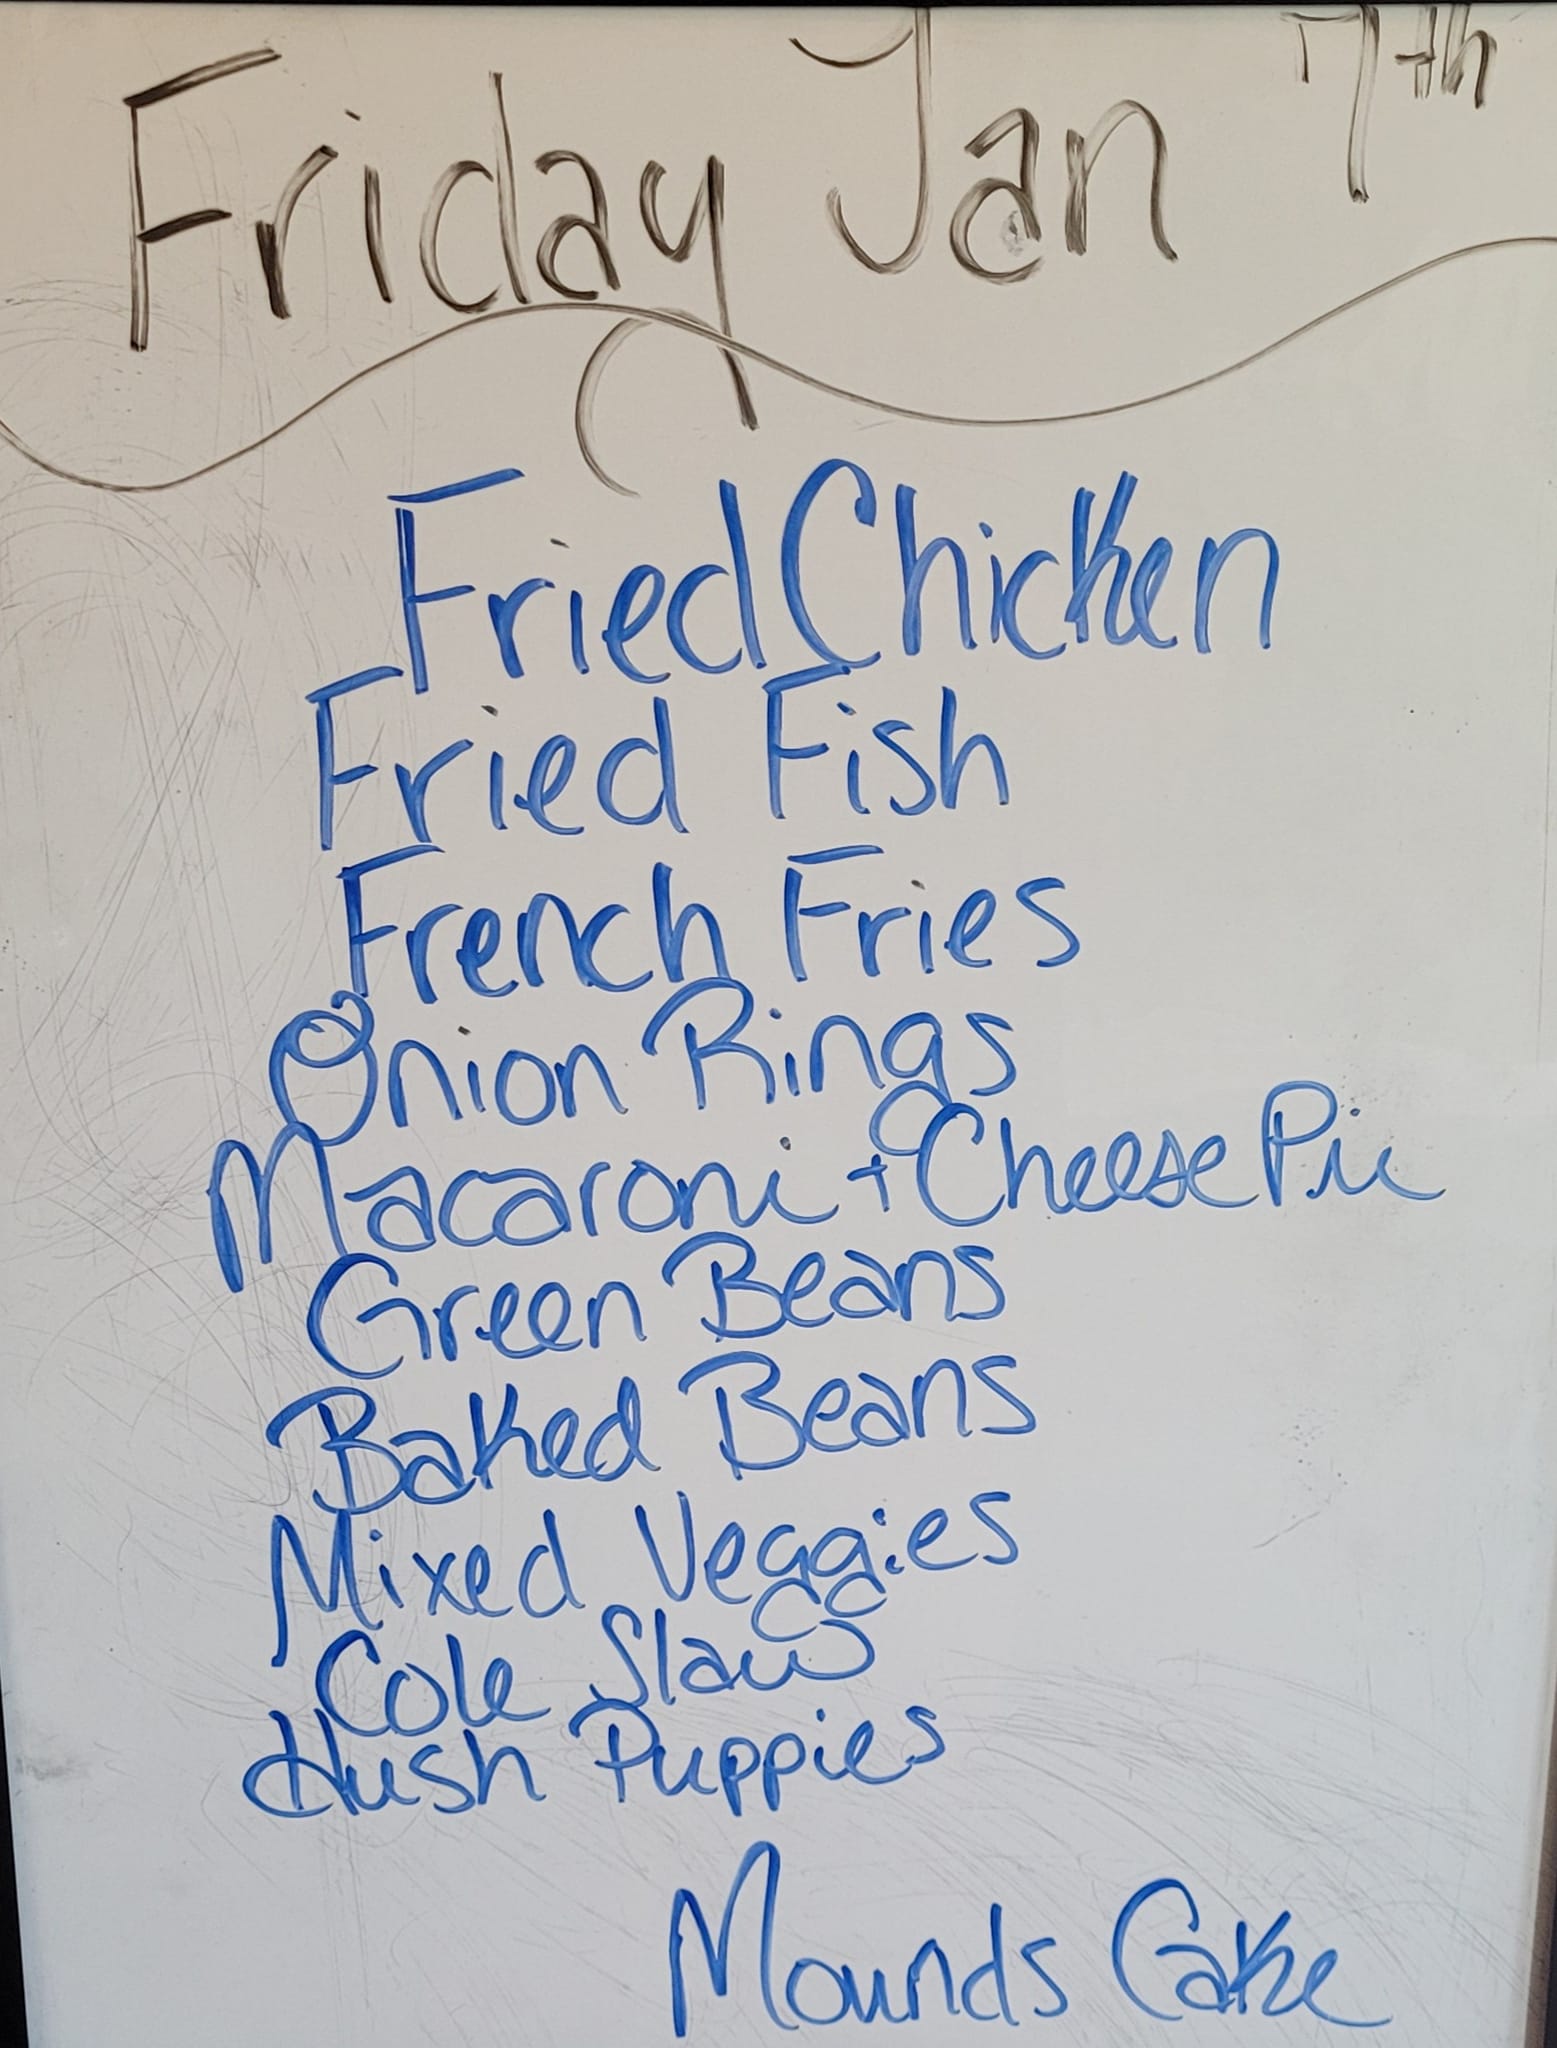 Friday Jan 7th
Fried Chicken
Fried Fish
French Fries
Onion Rings
Macaroni + Cheese Pie
Green Beans
Baked Beans
Mixed Veggies
Cole Slaw
Hush Puppies
Mounds Cake